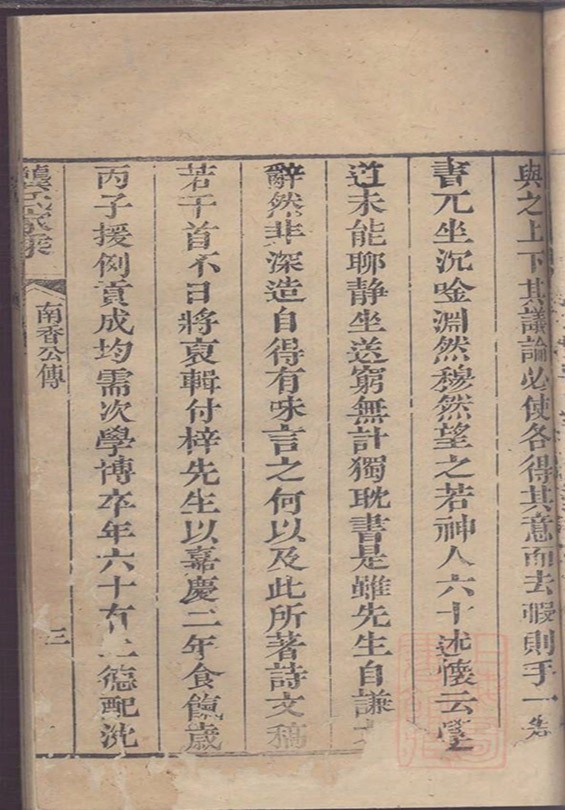 與之上下其議論必使各得其意而去暇則手一
書兀坐沉唫淵然穆然望之若神人六十述懷云
道未能聊靜坐送窮無計獨耽書是雖先生自謙
辭然非深造自得有味言之何以及此所著詩文稿
若干首不日將裒輯付梓先生以嘉慶二年食餼歲
丙子援例貢成均需次學博卒年六十有二德配沈
南香公傳
三